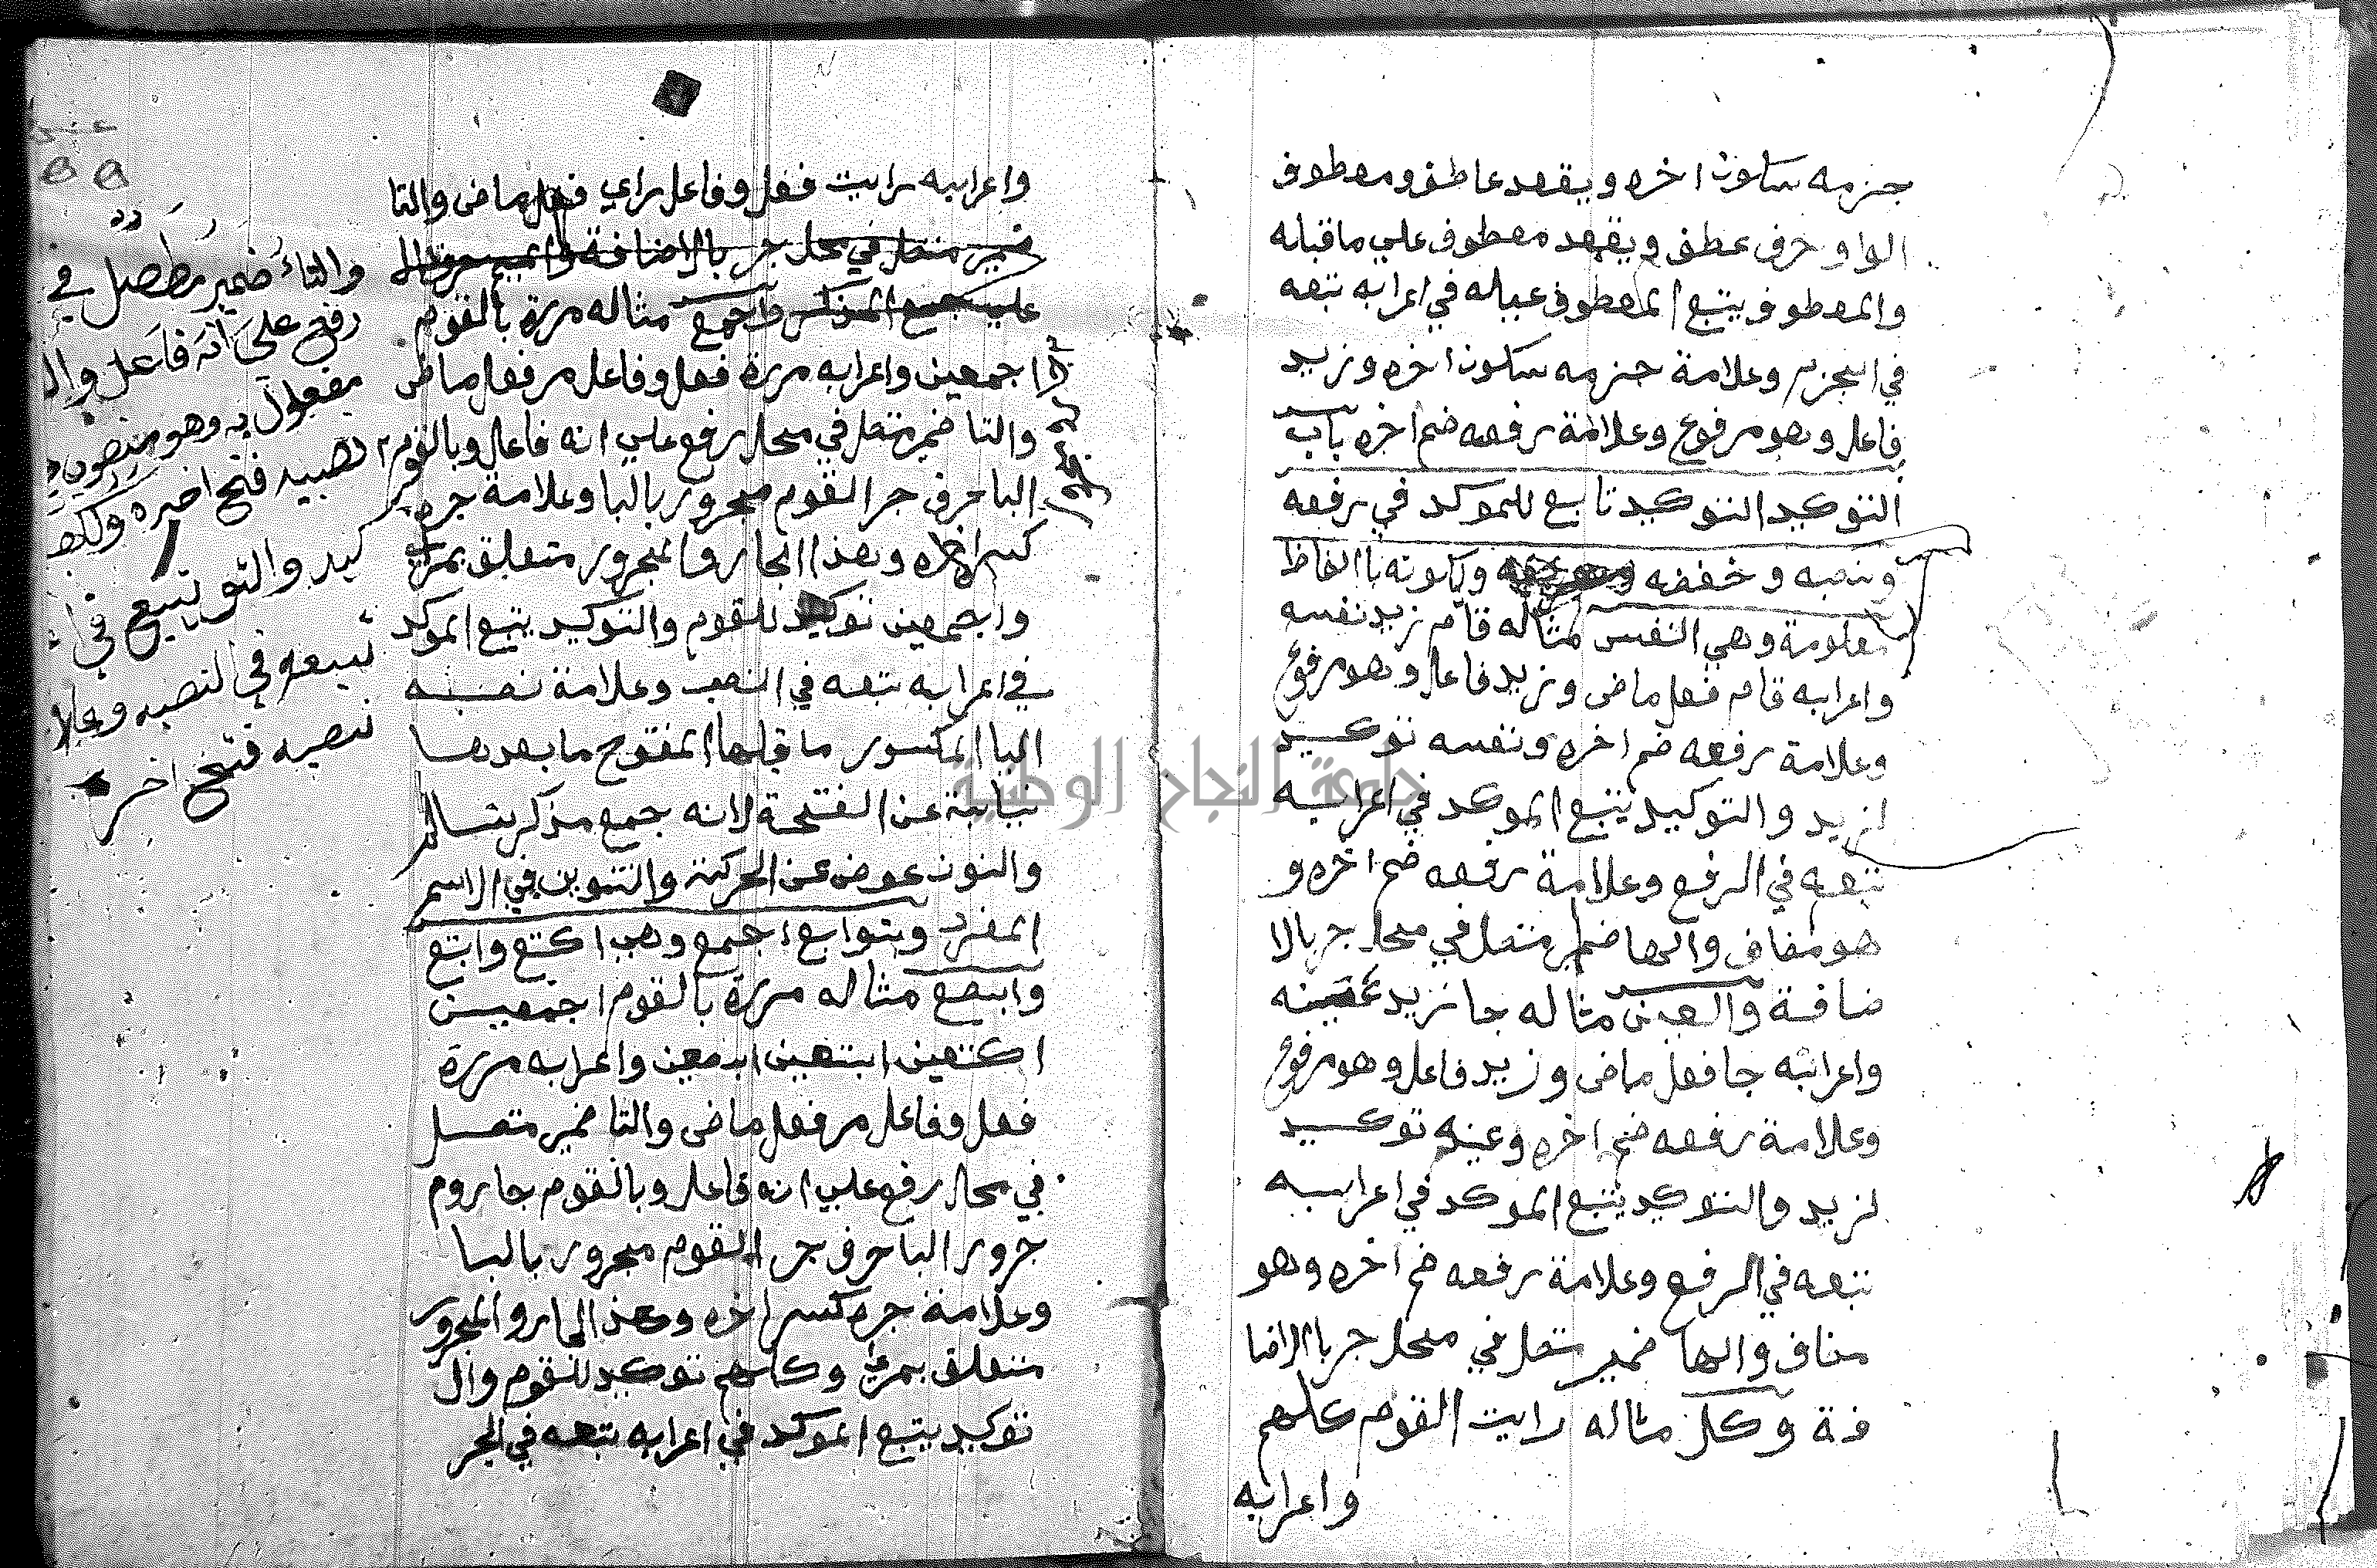 جزمه سكون اخره ويقعد عاطف ومعطوف
الواو حرف عطف ويقعد معطوف علي ماقبله
والمعطوف يتبع المعطوف عليه في اعرابه تبعه
في الجزم وعلامة جزمه سكون اخره وزيد
فاعل وهو مرفوع وعلامة رفعه ضم اخره باب
التوكيد التوكيد تابع للموكد في رفعه
ونصبه وخفضه ويكونه باالفاظ
معلومة وهي النفس مثاله قام زيد نفسه
واعرابه قام فعل ماض وزيد فاعل وهو مرفوع
وعلامة رفعه ضم اخره ونفسه توكيد
لزيد والتوكيد يتبع الموكد في اعرابه
تبعه في الرفع وعلامة رفعه ضم اخره و
هو مضاف والها ضمير متصل في محل جر بالا
ضافة والعين مثاله جا زيد عينه
واعرابه جا فعل ماض وزيد فاعل وهو مرفوع
وعلامة رفعه ضم اخره وعينه توكيد
لزيد والتوكيد يتبع الموكد في اعرابه
تبعه في الرفع وعلامة رفعه ضم اخره وهو
مضاف والها ضمير متصل في محل جر باالاضا
فة وكل مثاله رايت القوم كلهم
واعرابه
واعرابه رايت فعل وفاعل راي فعل ماض والتا
ضمير متصل في محل جر بالاضافة والميم حرف دال
علي جمع المذكر واجمع مثاله مررة بالقوم
اجمعين واعرابه مررة فعل وفاعل مر فعل ماض
والتا ضمير متصل في محل رفع علي انه فاعل وبالقوم
البا حرف جر القوم مجرور بالبا وعلامة جره
كسر اخره وهذا الجار والمجرور متعلق بمر
واجمعين توكيد للقوم والتوكيد يتبع الموكد
في اعرابه تبعه في النصب وعلامة نصبه
اليا المكسور ما قبلها المفتوح ما بعدها
نيابية عن الفتحة لانه جمع مذكر سالم
والنون عوض عن الحركة والتنوين في الاسم
المفرد وتوابع اجمع وهي اكتع وابتع
وابصع مثاله مررة بالقوم اجمعين
اكتعين ابتعين ابصعين واعرابه مررة
فعل وفاعل مر فعل ماض والتا ضمير متصل
في محل رفع علي انه فاعل وبالقوم جار وم
جرور البا حرف جر القوم مجرور بالبا
وعلامة جره كسر اخره وهذ الجار والمجرور
متعلق بمر وكلهم توكيد للقوم وال
توكيد يتبع الموكد في اعرابه تبعه في الجر
والتاء ضمير متصل في
رفع على انه فاعل وال
مفعول به وهو منصوب و
نصبه فتح اخره وكله
كيد والتو تتبع في ا
تبعه في النصب وعلا
نصبه فتح اخر
جامعة النجاح الوطنية